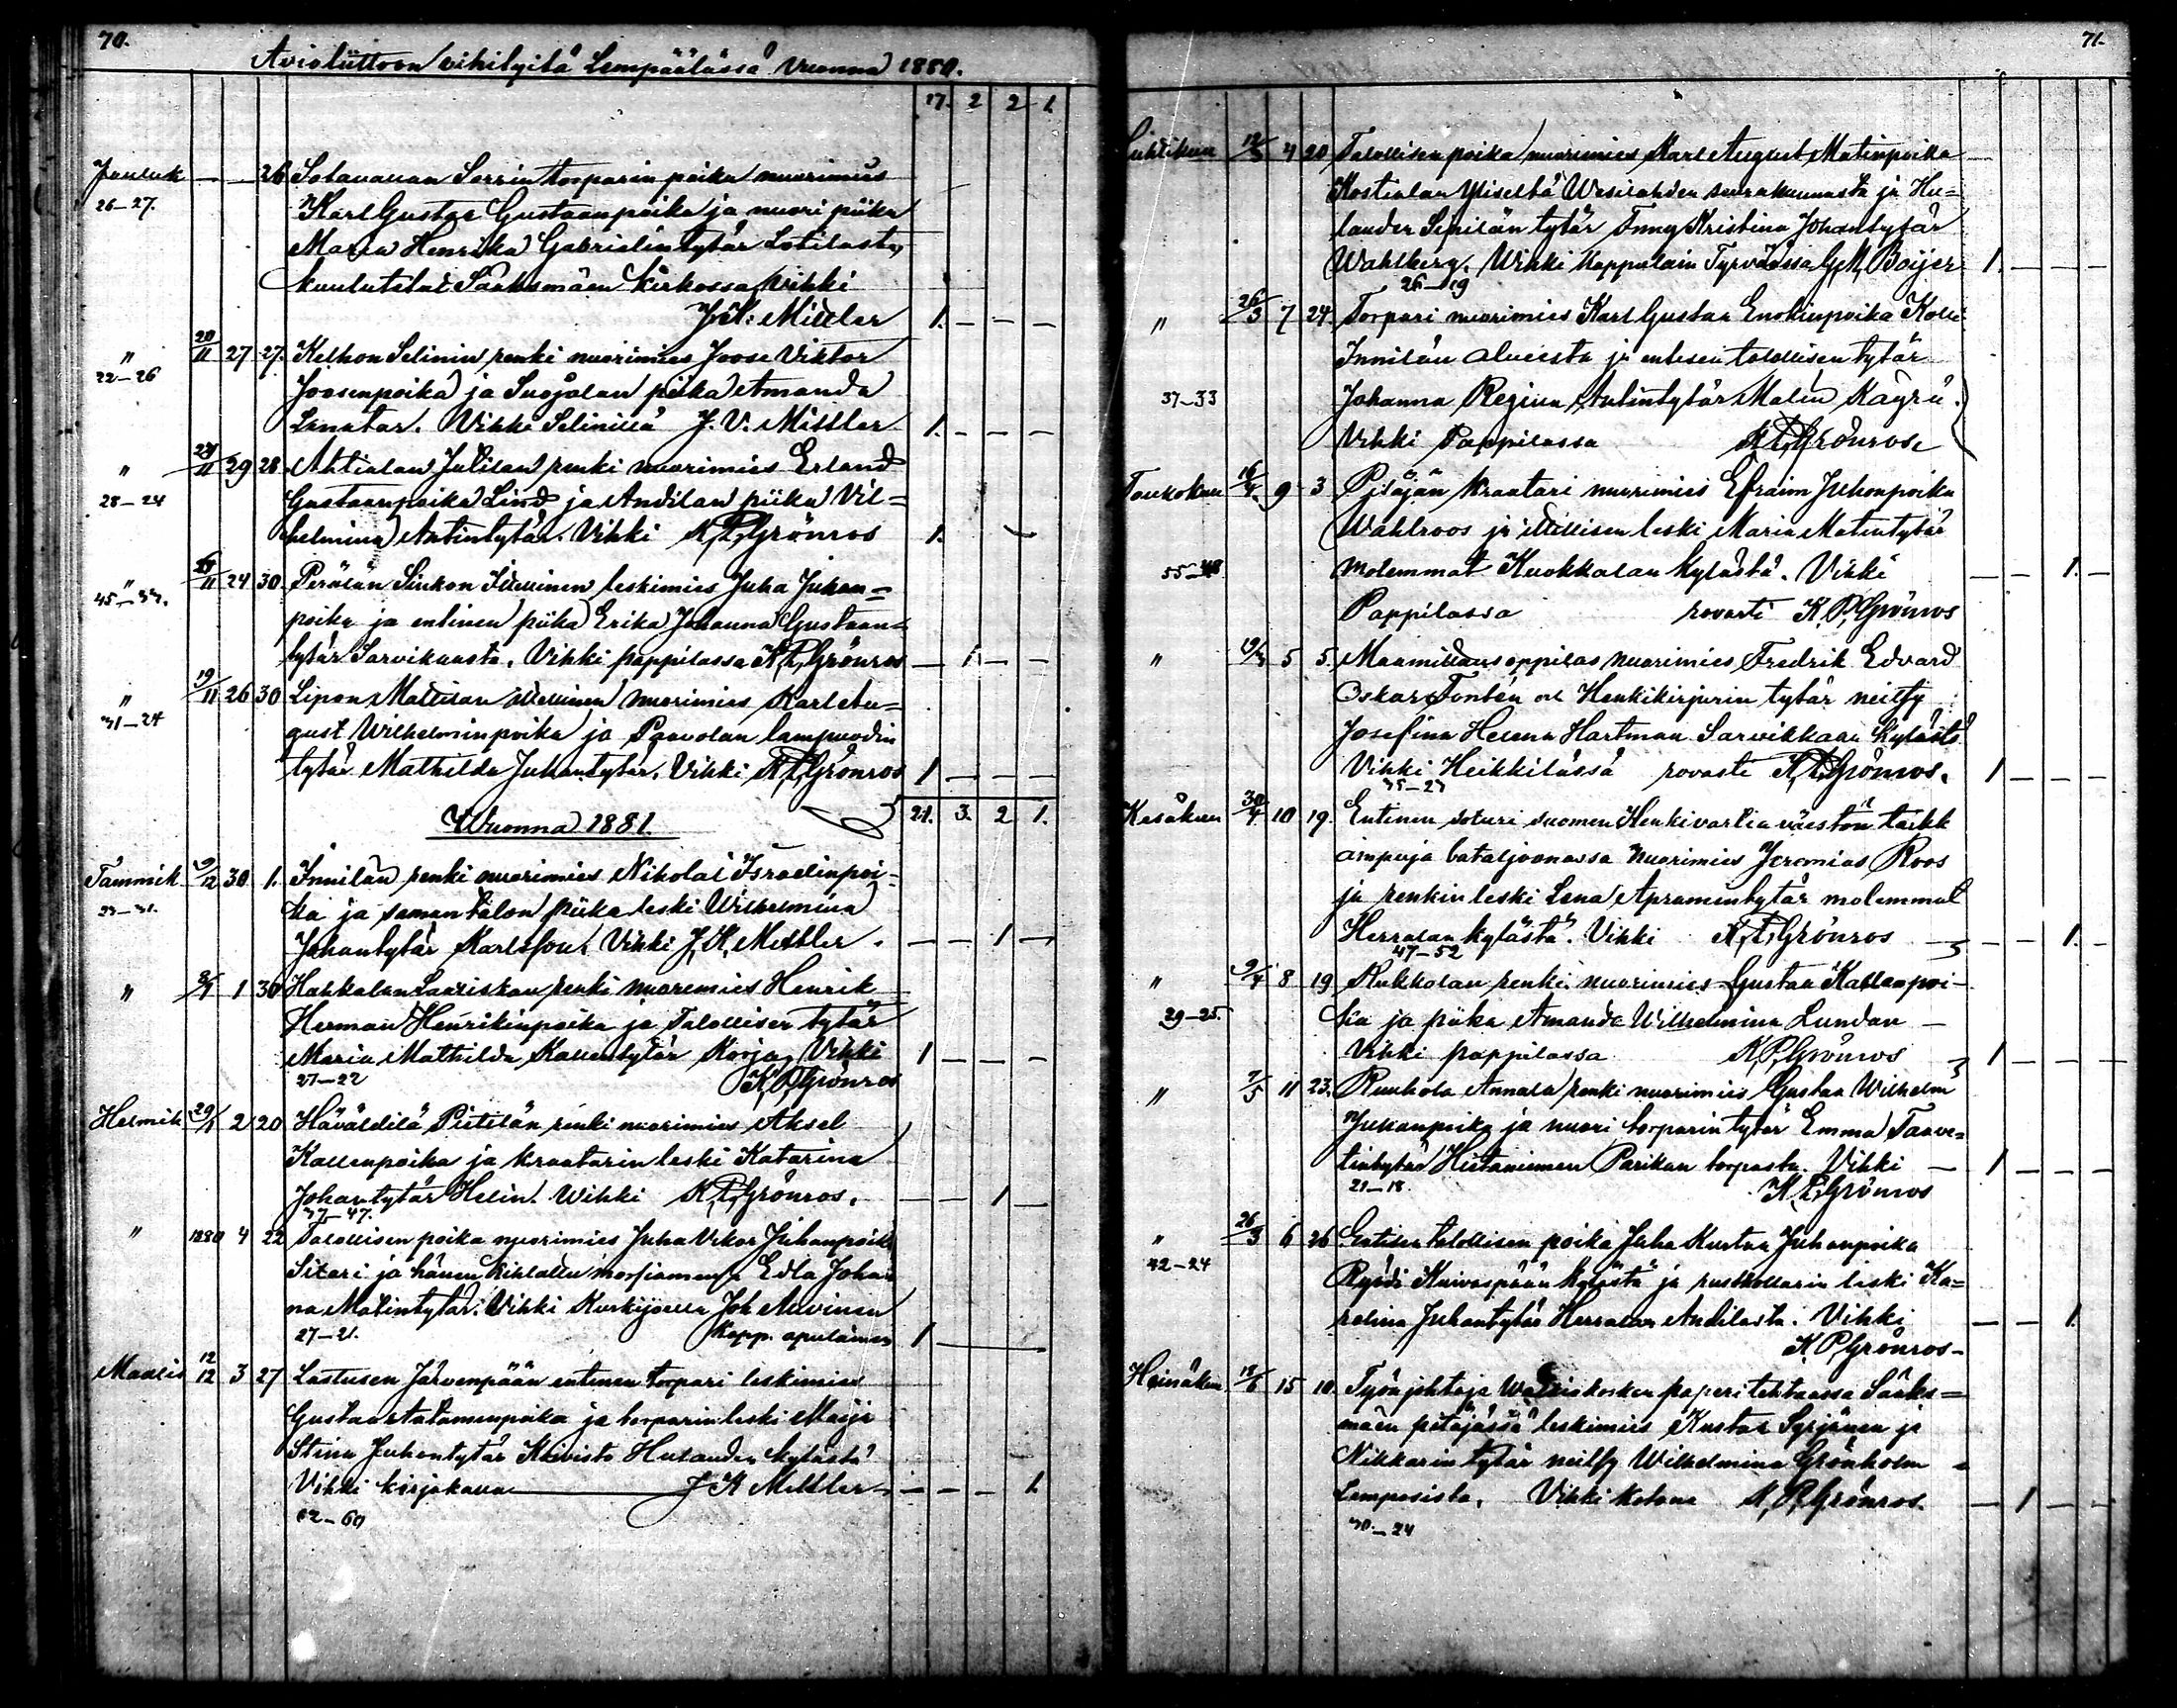 70.
Avioliittoon vihityitä Lempäälässä Vuonna 1880.
17. 2 2 1
Jouluk — — 26 Sotavallan Sarrin torparin poika nuorimies
26—27. Karl Gustaf Gustaanpoika ja nuori piika
Maria Henrika Gabrielintytär Lotilasta,
kuulutetut Sääksmäen kirkossa, vihki
J. K. Mittler 1. — — —
" 20/11 27 27. Kelhon Selinin renki nuorimies Joose Viktor
22—26 Joosenpoika ja Suojalan piika Amanda
Vihki Selinillä J. V. Mittler 1. — — —
" 27/11 29 28 Ahtialan Jutilan renki nuorimies Erland
28—24 Gustaanpoika Lind ja Andilan piika Vil=
helmina Antintytär. Vihki K. P. Grönros 1. —
" 11 24 30. Perälän Sinkon leskimies Juha Juhan=
45—33. poika ja entinen piika Erika Johanna Gustaan=
tytär Sarvikaasta. Vihki pappilassa K. P. Grönros — 1. — —
" 19/11 26 30 Lipon Mattilan nuorimies Karl Au=
31—24 gust Wilhelminpoika ja Paavolan lampuodin
tytär Mathilda Juhantytär. Vihki K. P. Grönros 1 — — —
21. 3. 2 1.
Wuonna 1881.
Tammik 9/12 30 1. Innilän renki nuorimies Nikolai Israelinpoi-
ka ja saman talon piika leski Wilhelmina
Johantytär Karlsson. Vihki J. K. Mittler. — — 1 —
" 1 30 Hakkalan Lauriskan renki nuoremies Henrik
Herman Henrikinpoika ja Talollisen tytär
Maria Mathilda Kallentytär Korja, Vihki 1 — — —
27—22 K. P. Grönros
Helmik 29/1 2 20 Pietilän renki nuorimies Aksel
Kallenpoika ja kraatarin leski Katarina
Johantytär Helin. Wihki K. P. Grönros. — — 1 —
37—47.
" 1880 4 22 Talollisen poika nuorimies Juha Vihtor Juhanpoika
Sitari ja hänen kihlattu morsiamensa Edla Johan
na Matintytär. Vihki Kurkijoella Joh. Auvinen
27—21. Kapp. apulainen 1
Maalis 12/12 3 27 Lastusen Järvenpään entinen torpari leskimies
Gustaa Aatamenpoika ja torparin leski Maija
Stina Juhantytär Koivisto Hulauden kylästä
Vihki kirjakaua J K Mittler — — — — 1.
62—60
71.
Huhtikuu 12/3 4 20 Talollisen poika nuorimies Karl August Matinpoika
Kostialan Yliseltä Wesilahden seurakunnasta ja Hu=
lauden Sipilän tytär Fanny Kristina Johantytär
Wahlberg. Wihki kappalain Tyrväässä G. M. Boijer 1. — — —
26—19
" 26/3 7 24. Torpari nuorimies Karl Gustaa Enokinpoika Kolli
Innilän alueesta ja entisen talollisen tytär
37—33 Johanna Regina Antintytär Malin Käyrä.
Vihki Pappilassa K. P. Grönros
Toukokuu 16/4 9 3 kraatari nuorimies Efraim Juhonpoika
Wahlroos ja itsellisen leski Maria Matintytär
55—48 molemmat Kuokkalan kylästä. Vihki — — 1. —
Pappilassa rovasti K. P. Grönros
" 5 5. Maamittausoppilas nuorimies Fredrik Edvard
Oskar Fontén ja Henkikirjurin tytär neitsy
Josefina Helena Hartman Sarvikkaan kylästä
Vihki Heikkilässä rovasti K. P. Grönros. 1 — — —
Kesäkuu 30/4 10 19. Entinen soturi suomen Henkivartia väestön tarkk
ampuja bataljoonassa nuorimies Jeremias Roos
ja renkin leski Lena Apramintytär molemmat
Herralan kylästä. Vihki K. P. Grönros — — 1. —
47—52
" 9/4 8 19 Kukkolan renki nuorimies Gustaa Kallenpoi-
29—25. ka ja piika Amanda Wilhelmina Lundan —
Vihki pappilassa K. P. Grönros 1 — — —
" 7/5 11 23. Ruuhola Annala renki nuorimies Gustaa Wilhelm
Juhanpoika ja nuori torparin tytär Emma Taave=
tintytär Hietaniemen Parikan torpasta. Vihki — 1 — — —
21—18. K. P. Grönros
" 26/3 6 26 Entisen talollisen poika Juha Kustaa Juhanpoika
22—24 Ryödi Kuivaspään kylästä ja rusthollarin leski Ka=
rolina Juhantytär Herralan Andilasta. Vihki — — 1.
K. P. Grönros —
Heinäkuu 18/6 15 10. Työnjohtaja Walkiakosken paperitehtaassa Sääks=
mäen pitäjässä leskimies Kustaa Syrjänen ja
Nikkarin tytär neitsy Wilhelmina Grönholm
Lempoisista. Vihki kotona K. P. Grönros. — 1 — —
30.—24